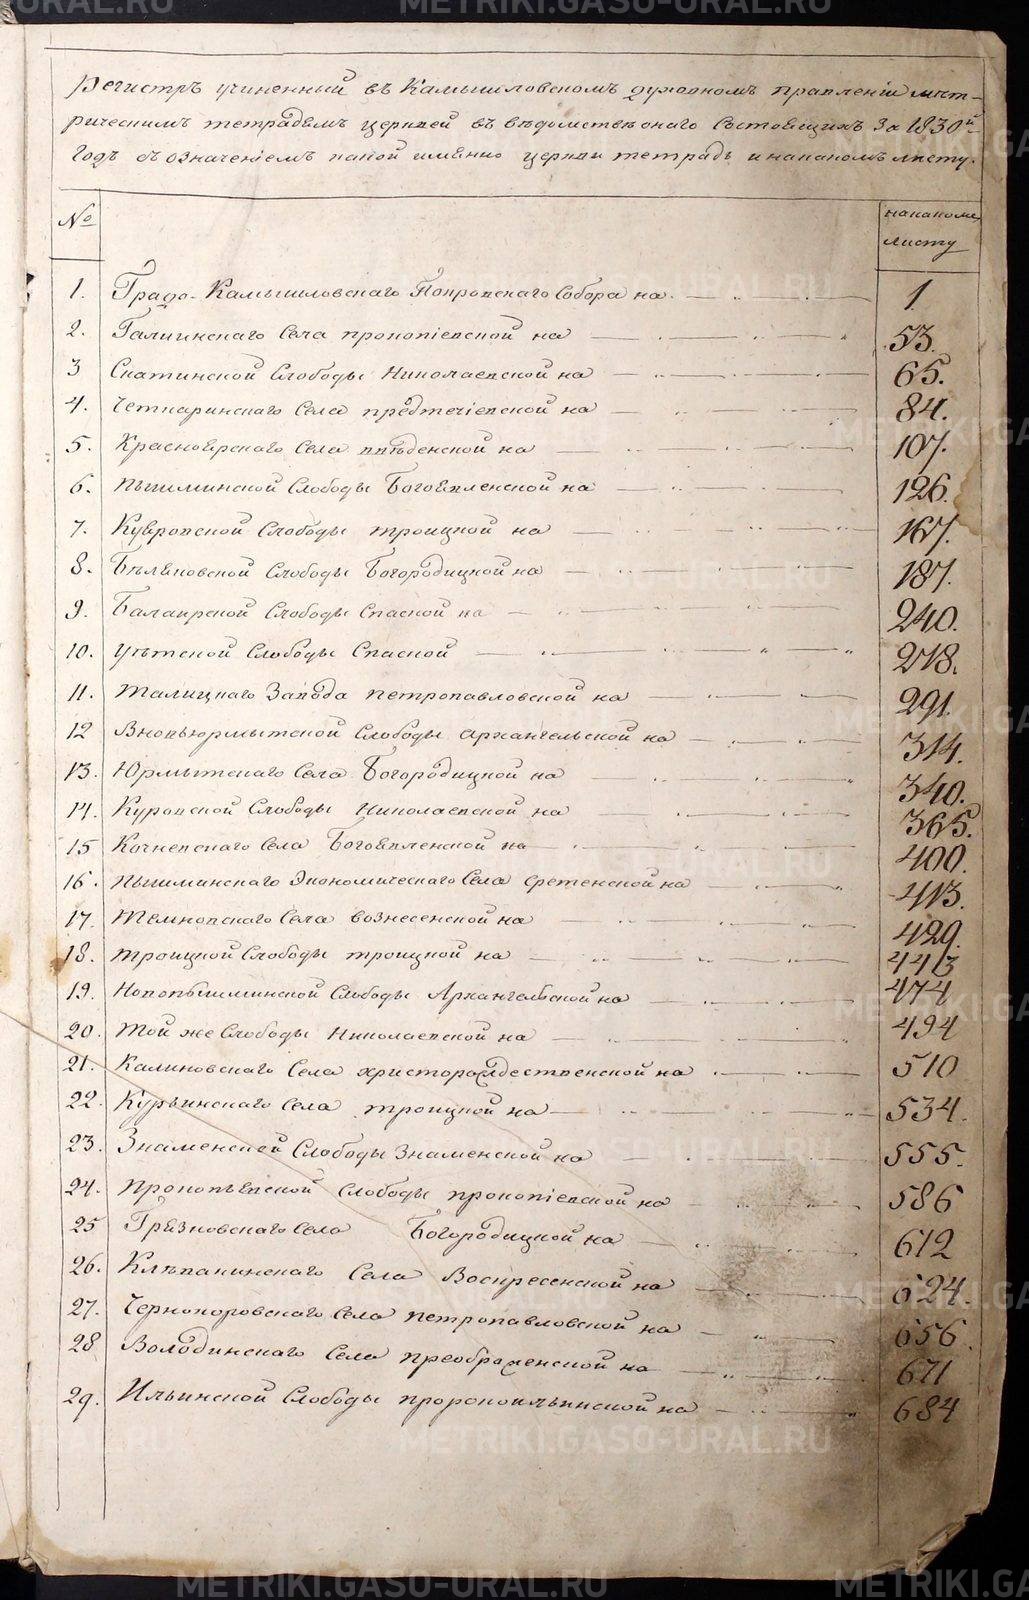 Регистръ учиненный въ Камышловскомъ духовномъ правленіи мѣт-
рическимъ тетрадямъ церквей въ вѣдомствѣ онаго Состоящихъ За 1830й
годъ съ означеніемъ какой имянно церкви тетрадь и накакомъ листу.
№ накакомъ
листу
1. Градо-Камышловскаго Покровскаго Собора на 1.
2. Галкинскаго Села прокопіевской на 53.
3 Скатинской Слободы Николаевской на 65.
4. Четкаринскаго Села предтечіевской на 84.
5. Красноярскаго Села введенской на 107.
6. пышминской Слободы Богоявленской на 126.
7. Куяровской Слободы троицкой на 167.
8. Бѣляковской Слободы Богородицкой на 187.
9. Балаирской Слободы Спаской на 240.
10. уѣтской Слободы Спаской 278.
11. талицкаго Завода петропавловской на 291.
12 Вновьюрмытской Слободы архангельской на 314.
13. Юрмытскаго Села Богородицкой на 340.
14. Куровской Слободы Николаевской на 365.
15 Кочневскаго Села Богоявленской на 400.
16. пышминскаго Экономическаго Села сретенской на 413.
17. темновскаго Села вознесенской на 429.
18. троицкой Слободы троицкой на 443
19. Новопышминской Слободы Архангельской на 474
20. той же Слободы Николаевской на 494
21. Калиновскаго Села христорождественской на 510
22. Курьинскаго Села троицкой на 534.
23. Знаменской Слободы Знаменской на 555.
24. прокопьевской слободы прокопіевской на 586
25 Грязновскаго Села Богородицкой на 612
26. Клѣвакинскаго Села Воскресенской на 624.
27. Чернокоровскаго Села петропавловской на 656
28 Володинскаго Села преображенской на 671
29. Ильинской Слободы пророкоильинской на 684
METRIKI.GASO-URAL.RU